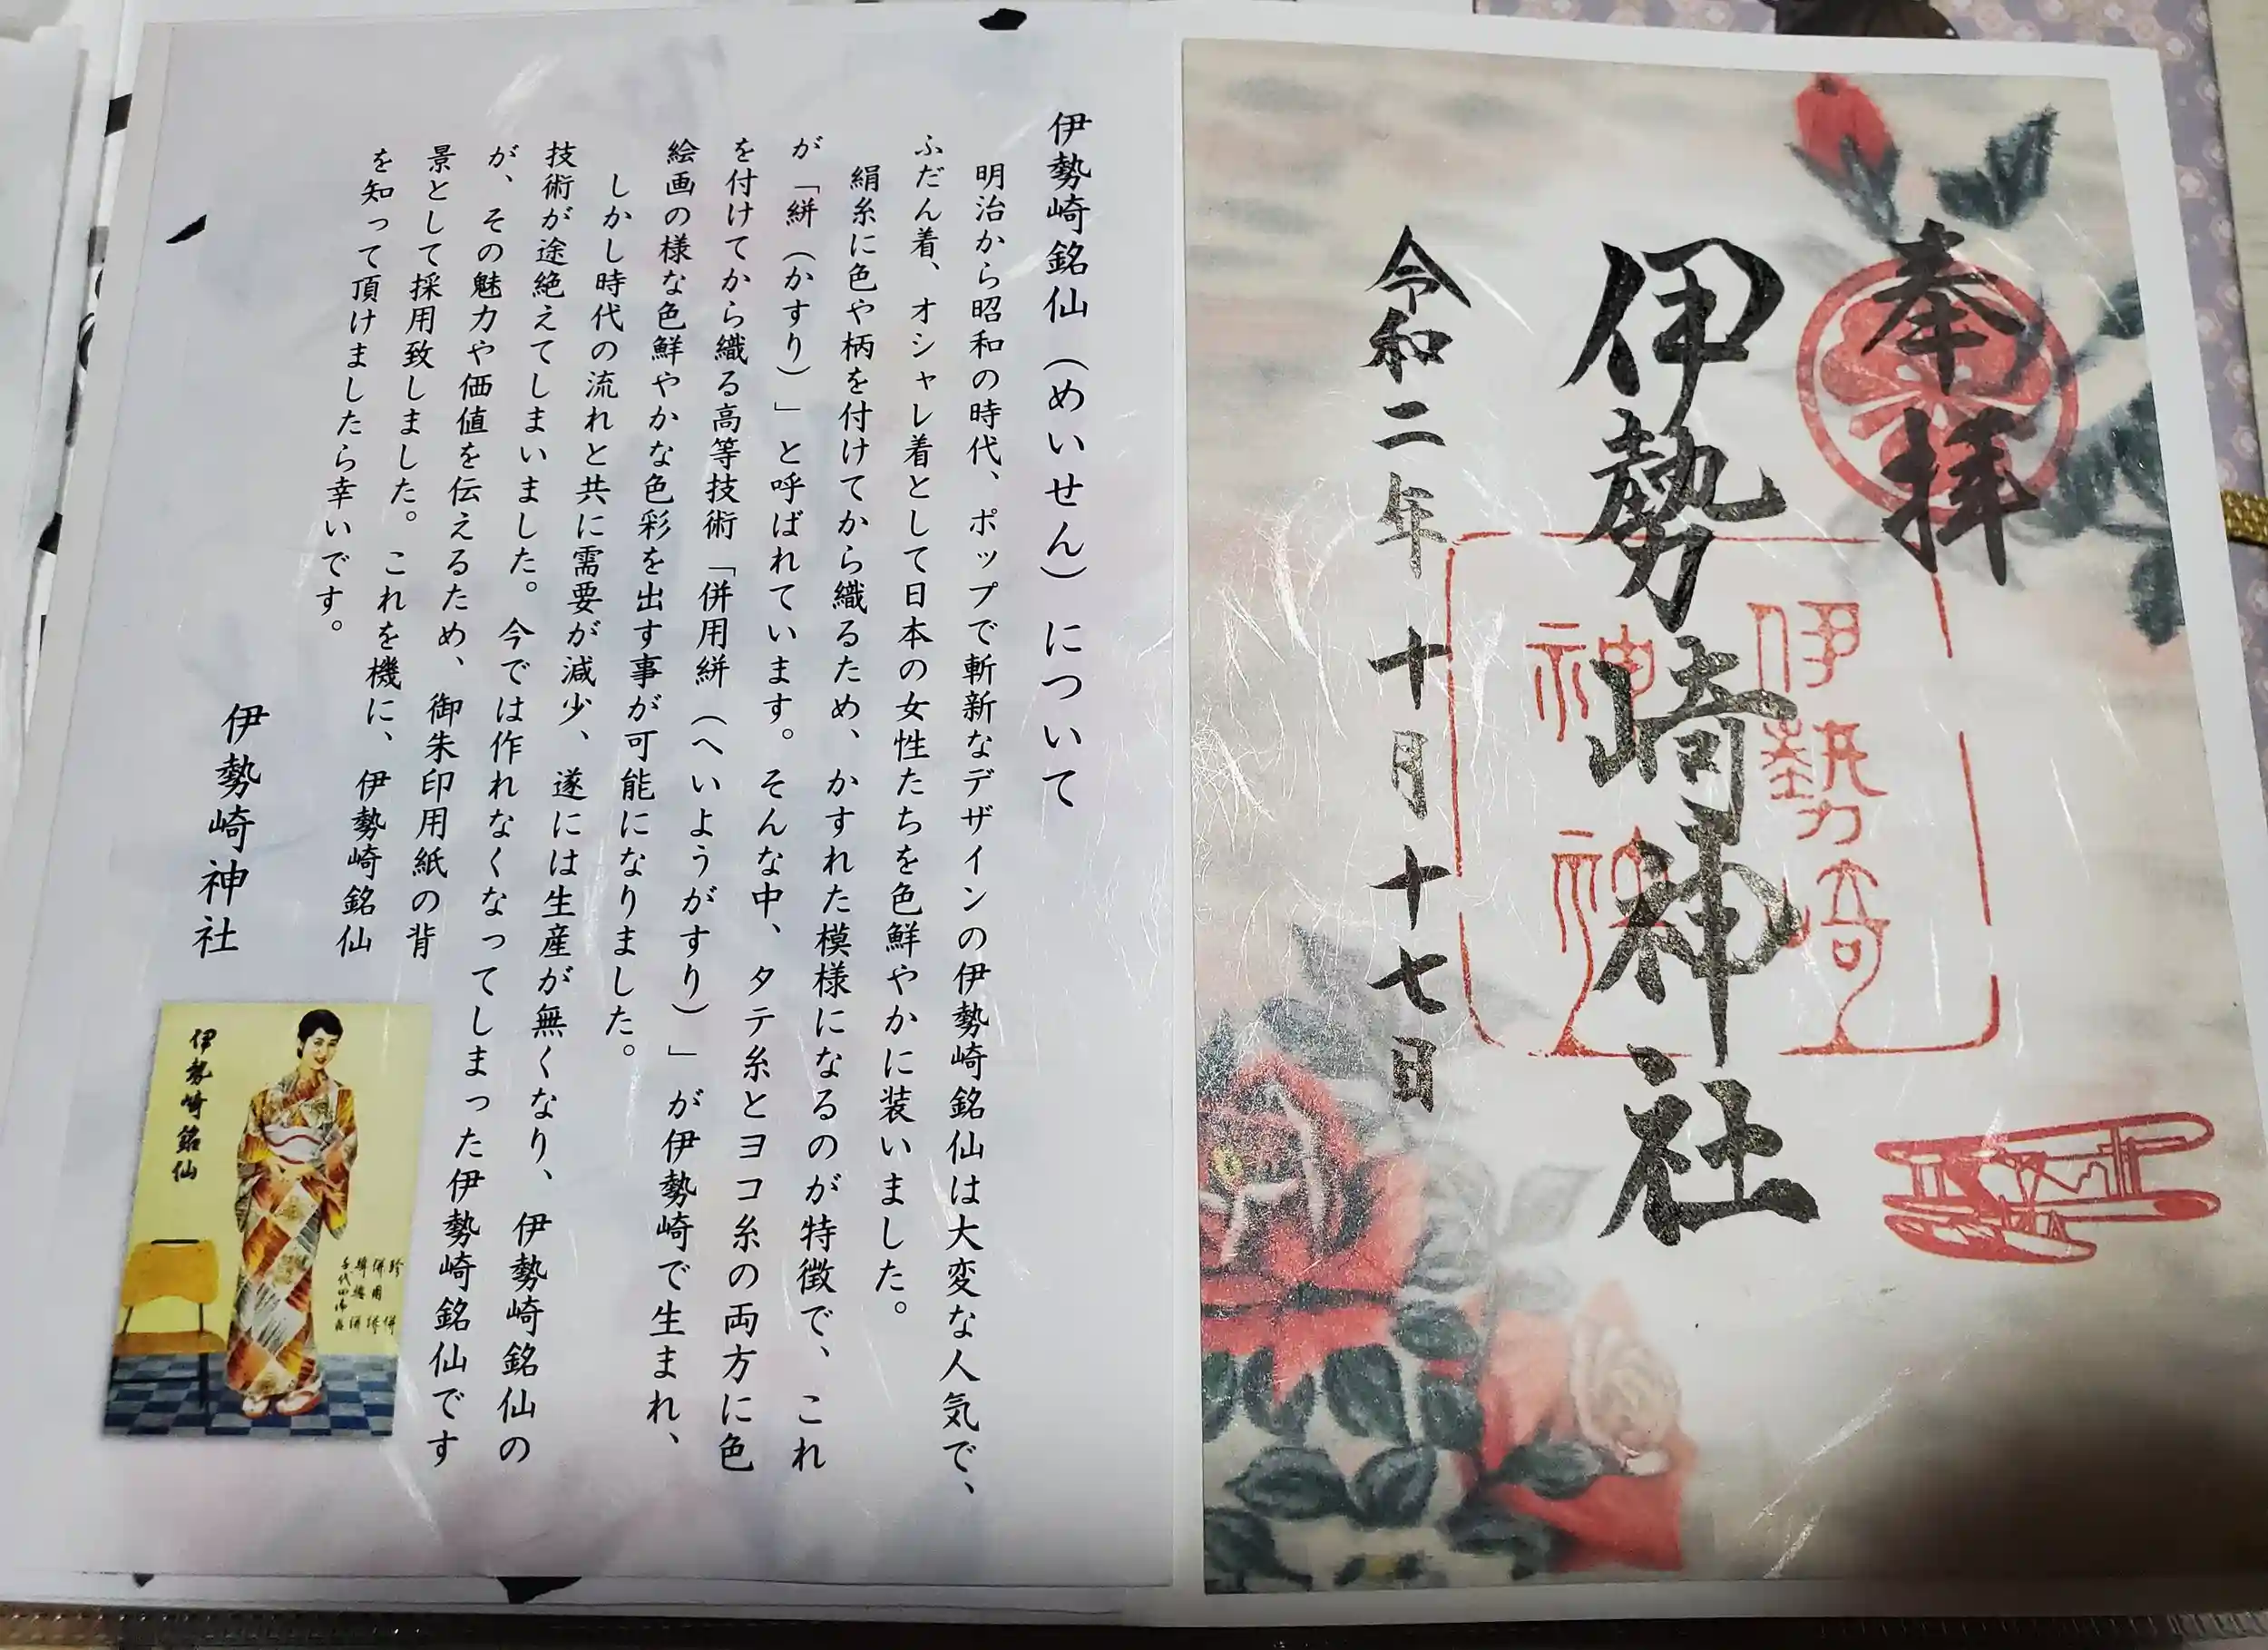 奉拝
伊勢崎神社
令和二年十月十七日
伊勢崎
神社
伊勢崎銘仙（めいせん）について
明治から昭和の時代、ポップで斬新なデザインの伊勢崎銘仙は大変な人気で、
ふだん着、オシャレ着として日本の女性たちを色鮮やかに装いました。
絹糸に色や柄を付けてから織るため、かすれた模様になるのが特徴で、これ
が「絣（かすり）」と呼ばれています。そんな中、タテ糸とヨコ糸の両方に色
を付けてから織る高等技術「併用絣（へいようがすり）」が伊勢崎で生まれ、
絵画の様な色鮮やかな色彩を出す事が可能になりました。
しかし時代の流れと共に需要が減少、遂には生産が無くなり、伊勢崎銘仙の
技術が途絶えてしまいました。今では作れなくなってしまった伊勢崎銘仙です
が、その魅力や価値を伝えるため、御朱印用紙の背
景として採用致しました。これを機に、伊勢崎銘仙
を知って頂けましたら幸いです。
伊勢崎神社
伊勢崎銘仙